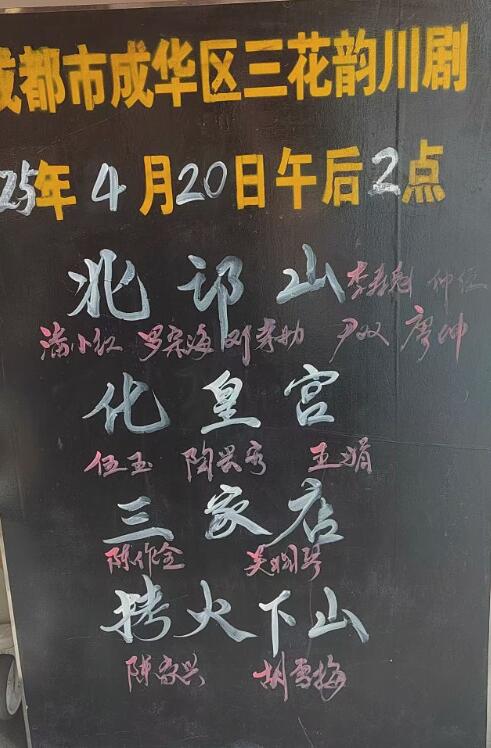 成都市成华区三花韵川剧
25年4月20日午后2点
北邙山 李春彪 仲位
潘小红 罗宗海 邓春劢 尹双 廖坤
化皇宫
伍玉 陶兴秀 王娟
三家店
陈作全
拷火下山
陈家兴 胡雪梅